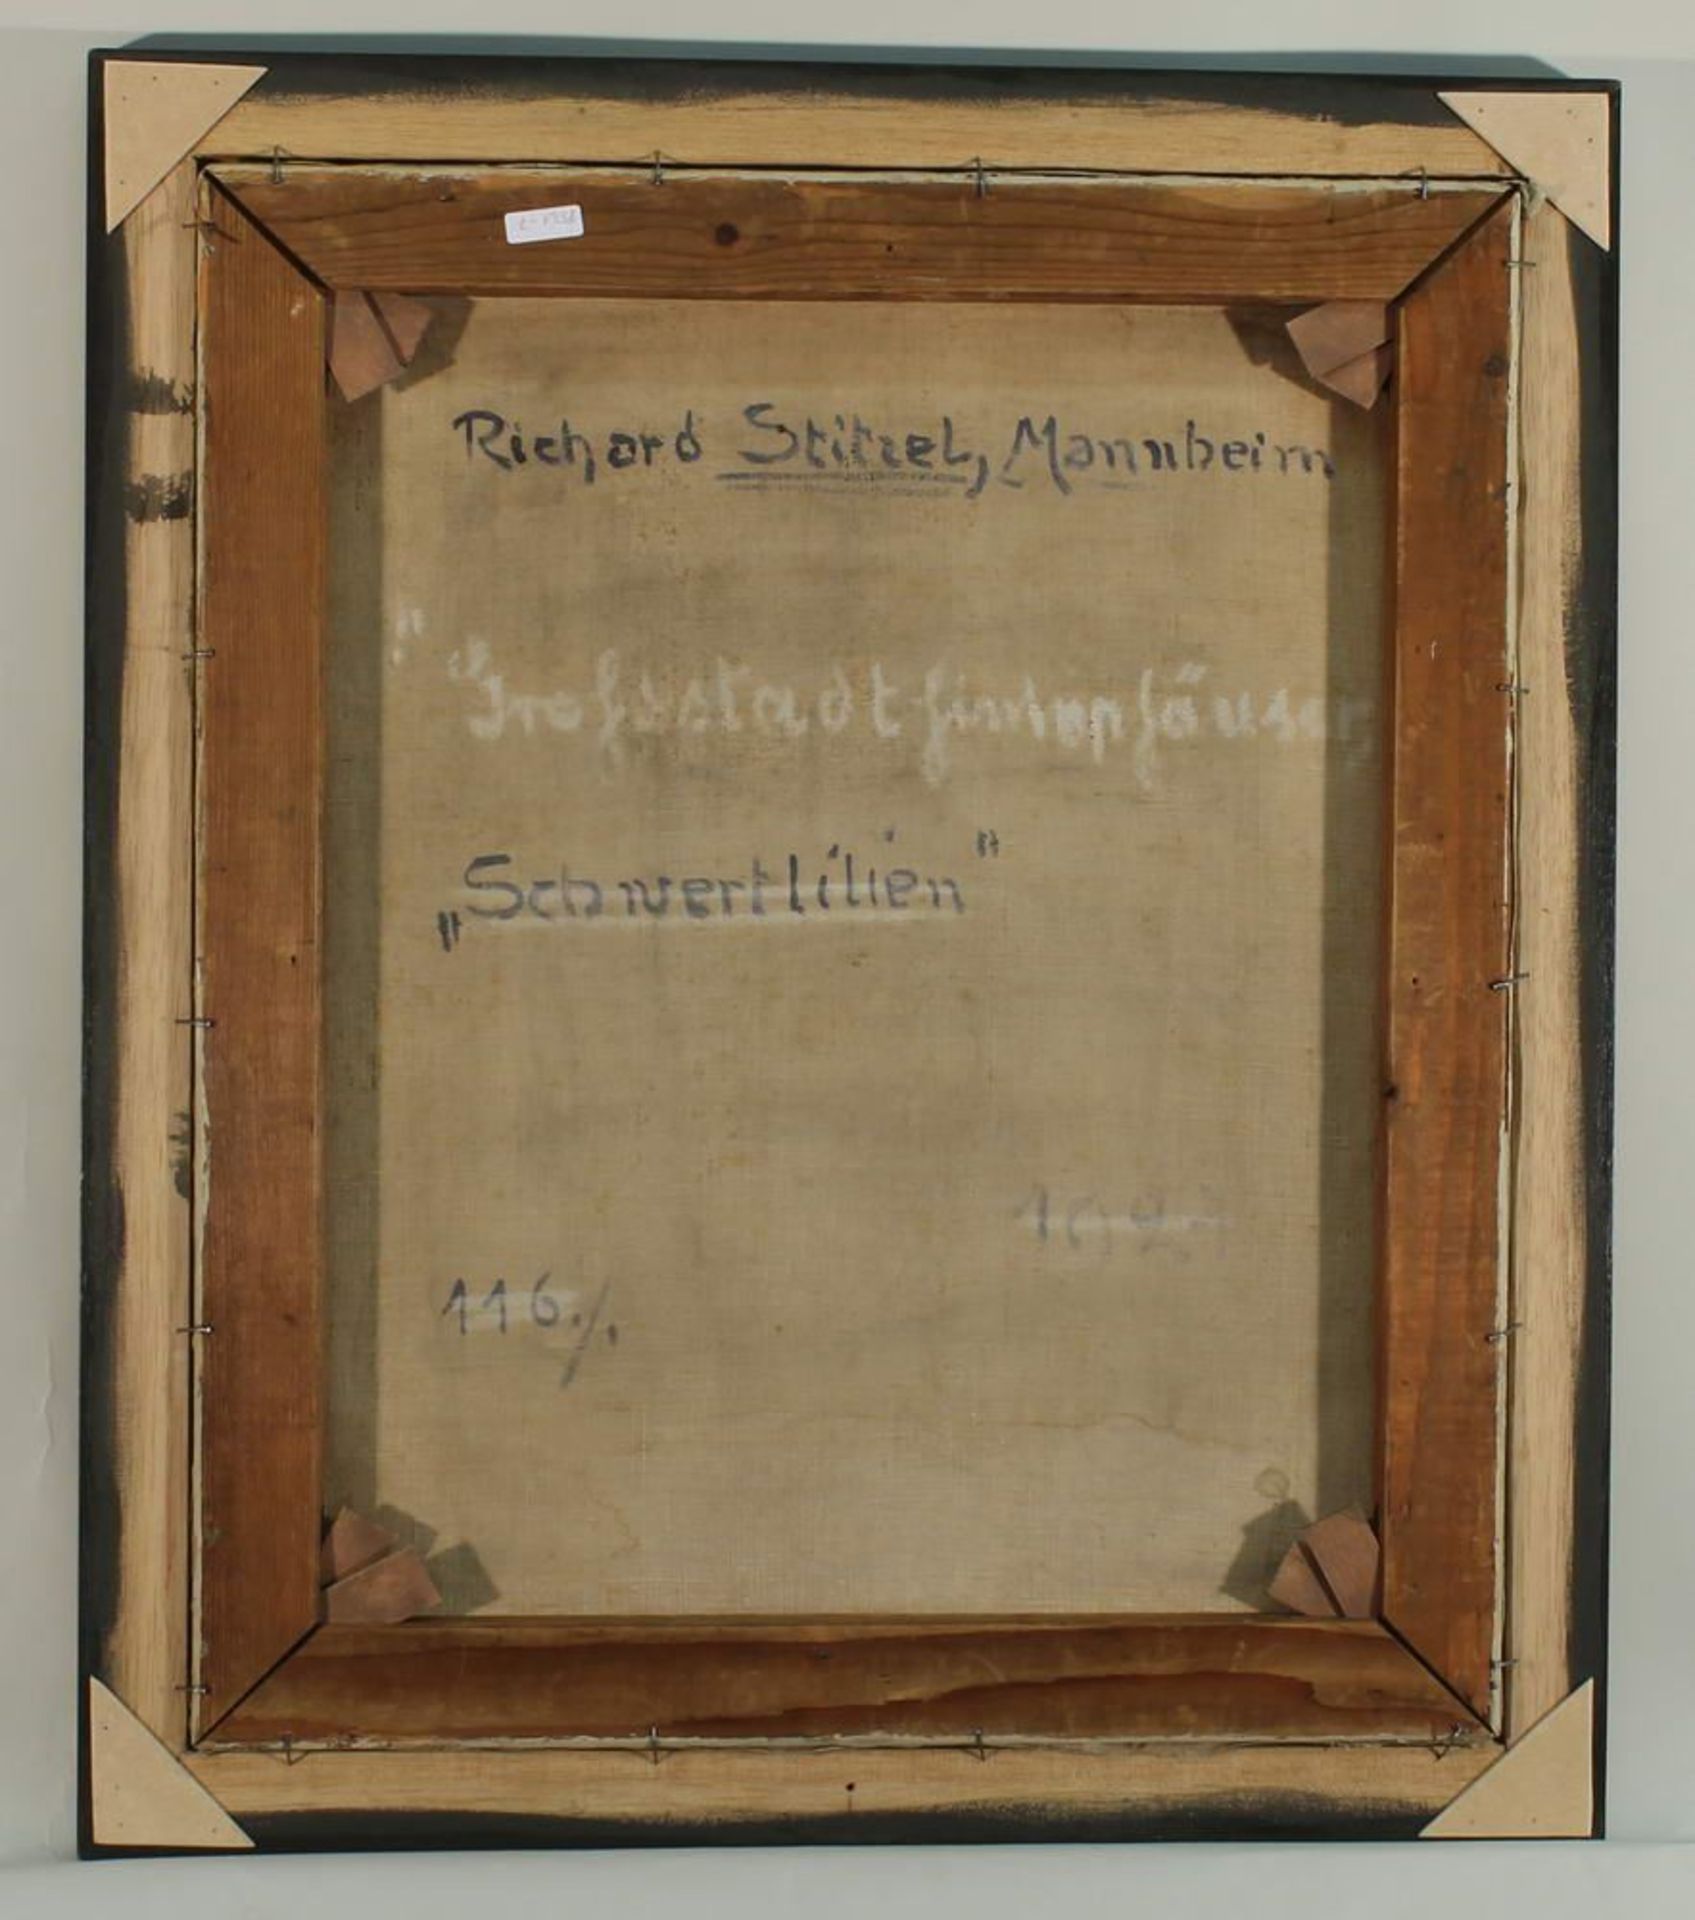 Richard Stitzel, Mannheim
"Großstadthinterhäuser,
„Schwertlilien"
116./.